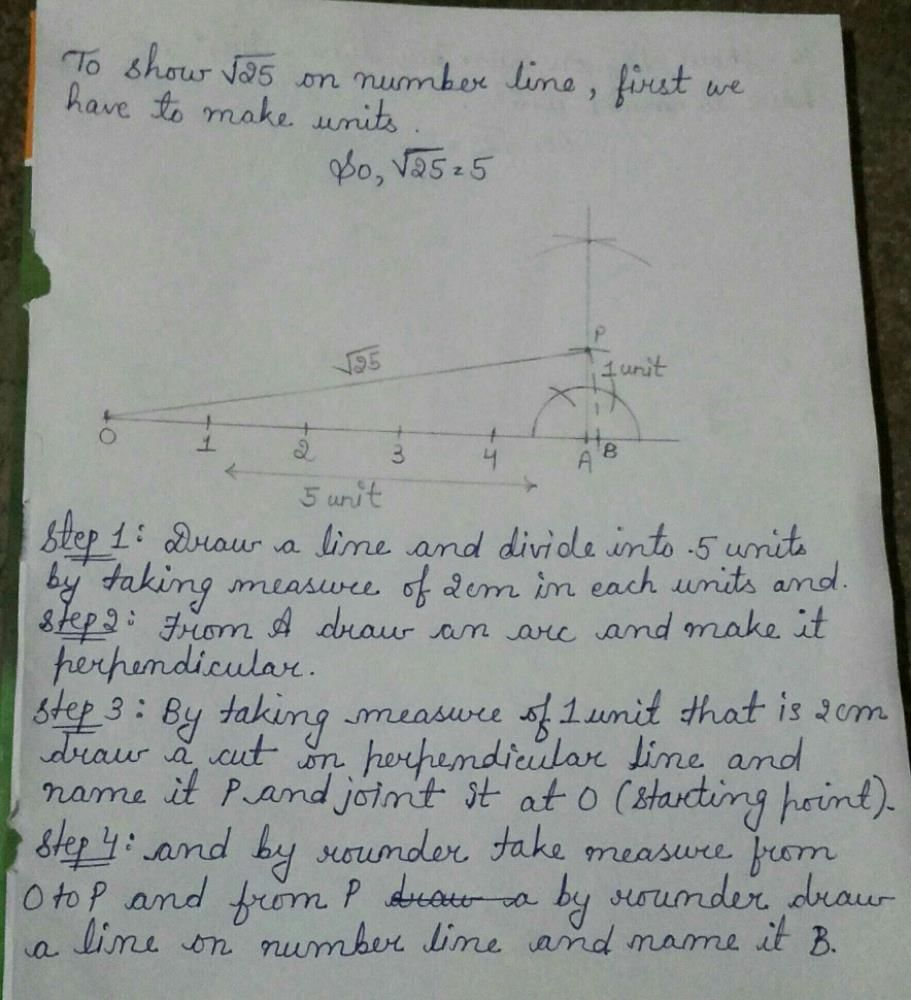 To show √25 on number line, first we
have to make units.
So, √25 = 5
P
√25
1 unit
0 1 2 3 4 A B
5 unit
Step 1: Draw a line and divide into 5 units
by taking measure of 2cm in each units and.
Step 2: From A draw an arc and make it
perpendicular.
Step 3: By taking measure of 1 unit that is 2cm
draw a cut on perpendicular line and
name it P and joint it at O (starting point).
Step 4: and by rounder take measure from
O to P and from P draw a by rounder draw
a line on number line and name it B.